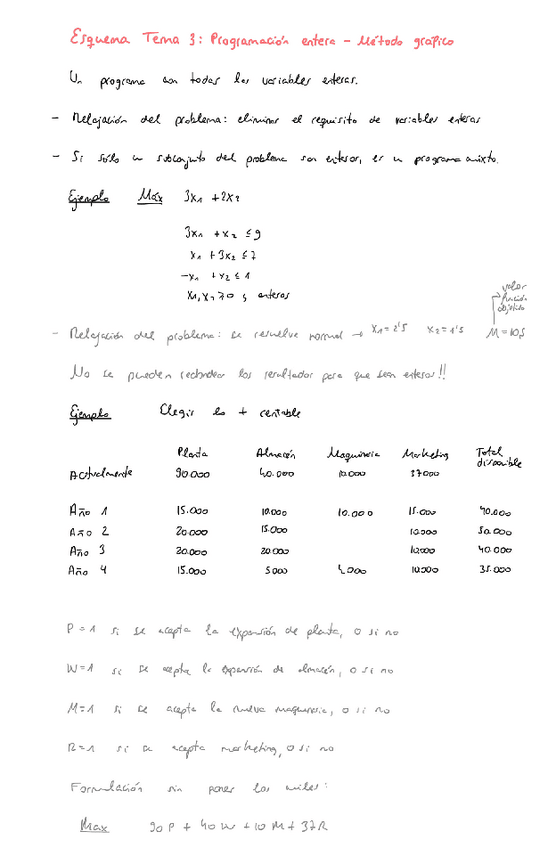 Esquema Tema 3: Programación entera - Método gráfico
Un programa con todas las variables enteras.
- Relajación del problema: eliminar el requisito de variables enteras
- Si sólo un subconjunto del problema son enteros, es un programa mixto.
Ejemplo Máx 3x₁ + 2x₂
3x₁ + x₂ ≤ 9
x₁ + 3x₂ ≤ 7
-x₁ + x₂ ≤ 1
x₁, x₂ ≥ 0 y enteras
valor
función
objetivo
- Relajación del problema: se resuelve normal → x₁ = 2'5 x₂ = 1'5 M = 10,5
No se pueden redondear los resultados para que sean enteros!!
Ejemplo Elegir lo + rentable
Planta Almacén Maquinaria Marketing Total disponible
Actualmente 90.000 40.000 10.000 37.000
Año 1 15.000 10.000 10.000 15.000 40.000
Año 2 20.000 15.000 10.000 50.000
Año 3 20.000 20.000 10.000 40.000
Año 4 15.000 5000 4.000 10.000 35.000
P = 1 si se acepta la expansión de planta, 0 si no
W = 1 si se acepta la expansión de almacén, 0 si no
M = 1 si se acepta la nueva maquinaria, 0 si no
R = 1 si se acepta marketing, 0 si no
Formulación sin poner los miles:
Max 90P + 40W + 10M + 37R